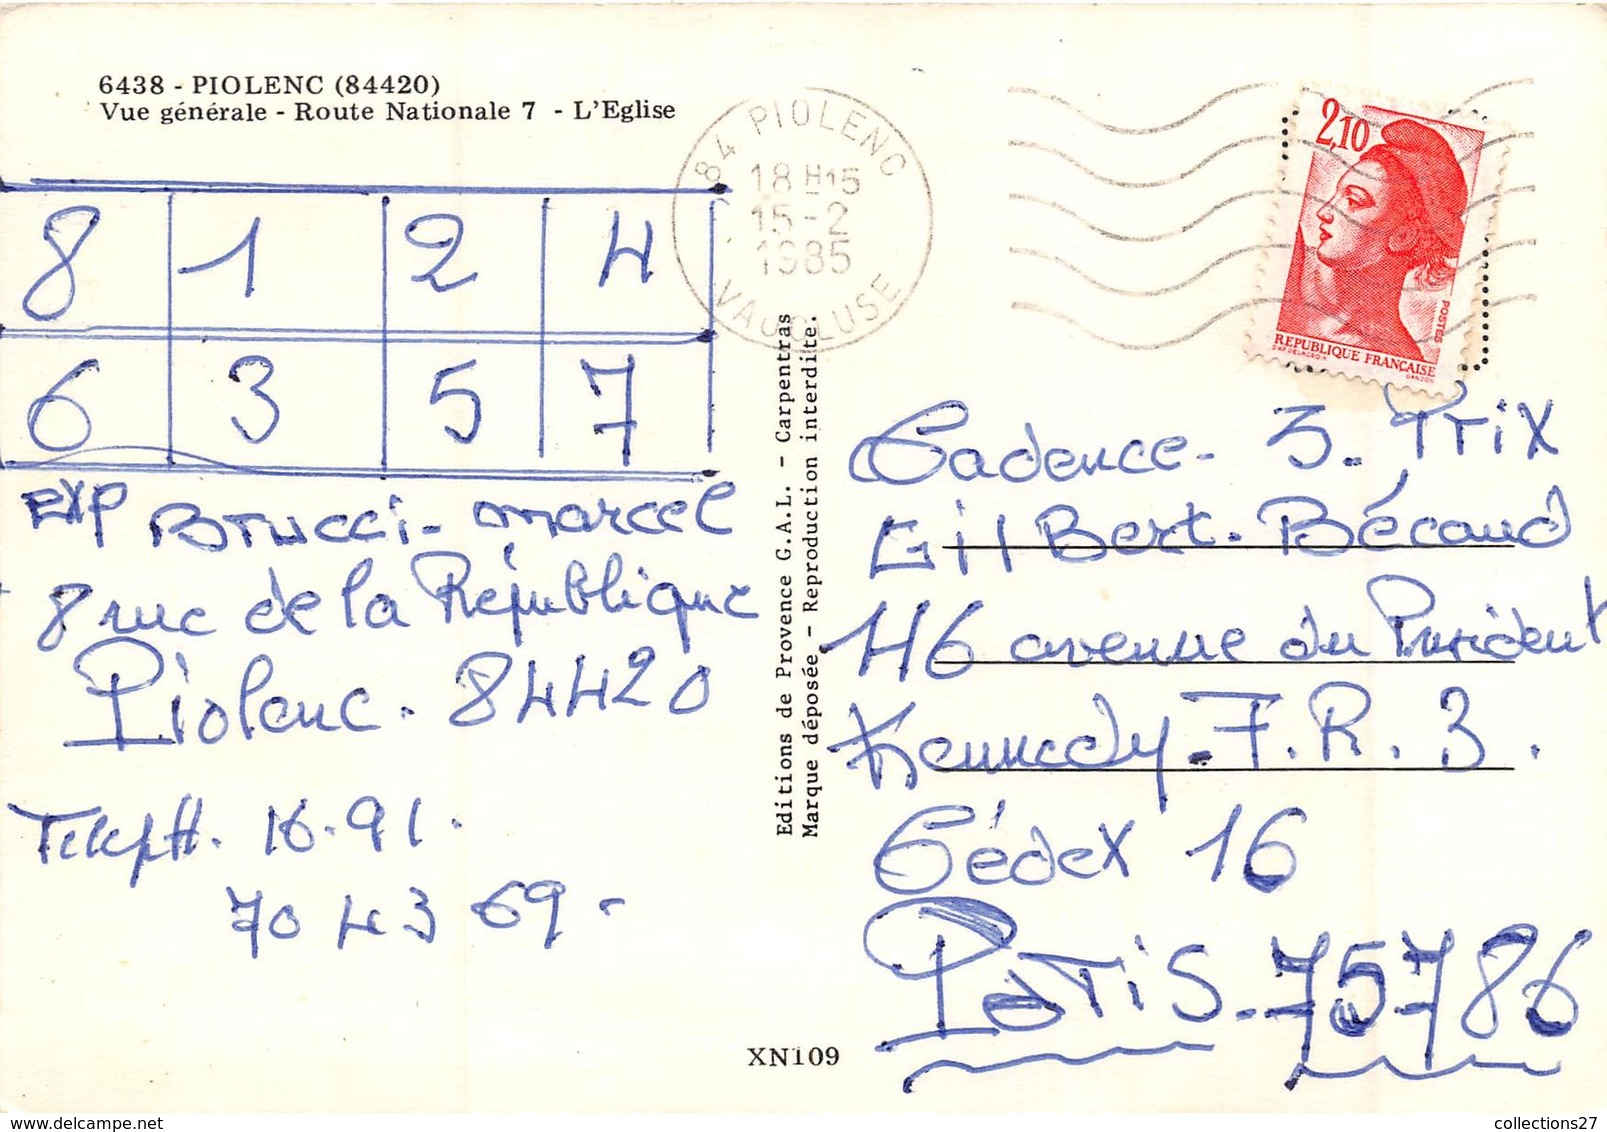 6438 - PIOLENC (84420)
Vue générale - Route Nationale 7 - L'Eglise
84 PIOLENC
18 H15
15-2
1985
VAUCLUSE
2,10
POSTES
REPUBLIQUE FRANÇAISE
D'AP. DELACROIX
GANDON
8 1 2 4
6 3 5 7
EXP Brucci - marcel
8 rue de la République
Piolenc. 84420
TélépH. 16.91.
70 43 69 -
Editions de Provence G.A.L. - Carpentras
Marque déposée - Reproduction interdite.
Cadence - 3. Trix
GilBert. Bécaud
116 avenue du Président
Kennedy - F. R. 3.
Cédex 16
Paris - 75786
XN109
collections27